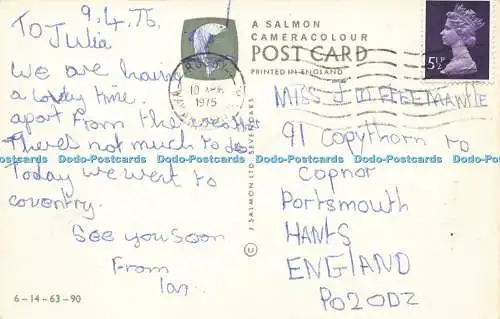 9.4.75.
TO Julia
We are having
a lovely time.
apart from the weather
Theres not much to do
Today we went to
coventry.
See you soon
From
Ian
6-14-63-90
A SALMON
CAMERACOLOUR
POST CARD
PRINTED IN ENGLAND
10 APR
1975
J SALMON LTD SEVENOAKS
5½P
MISS J M FLEETMANTLE
91 Copythorn rd
Copnor
Portsmouth
HANTS
ENGLAND
PO2 0DZ
Dodo-Postcards Dodo-Postcards Dodo-Postcards Dodo-Postcards Dodo-Postcards Dodo-Postcards